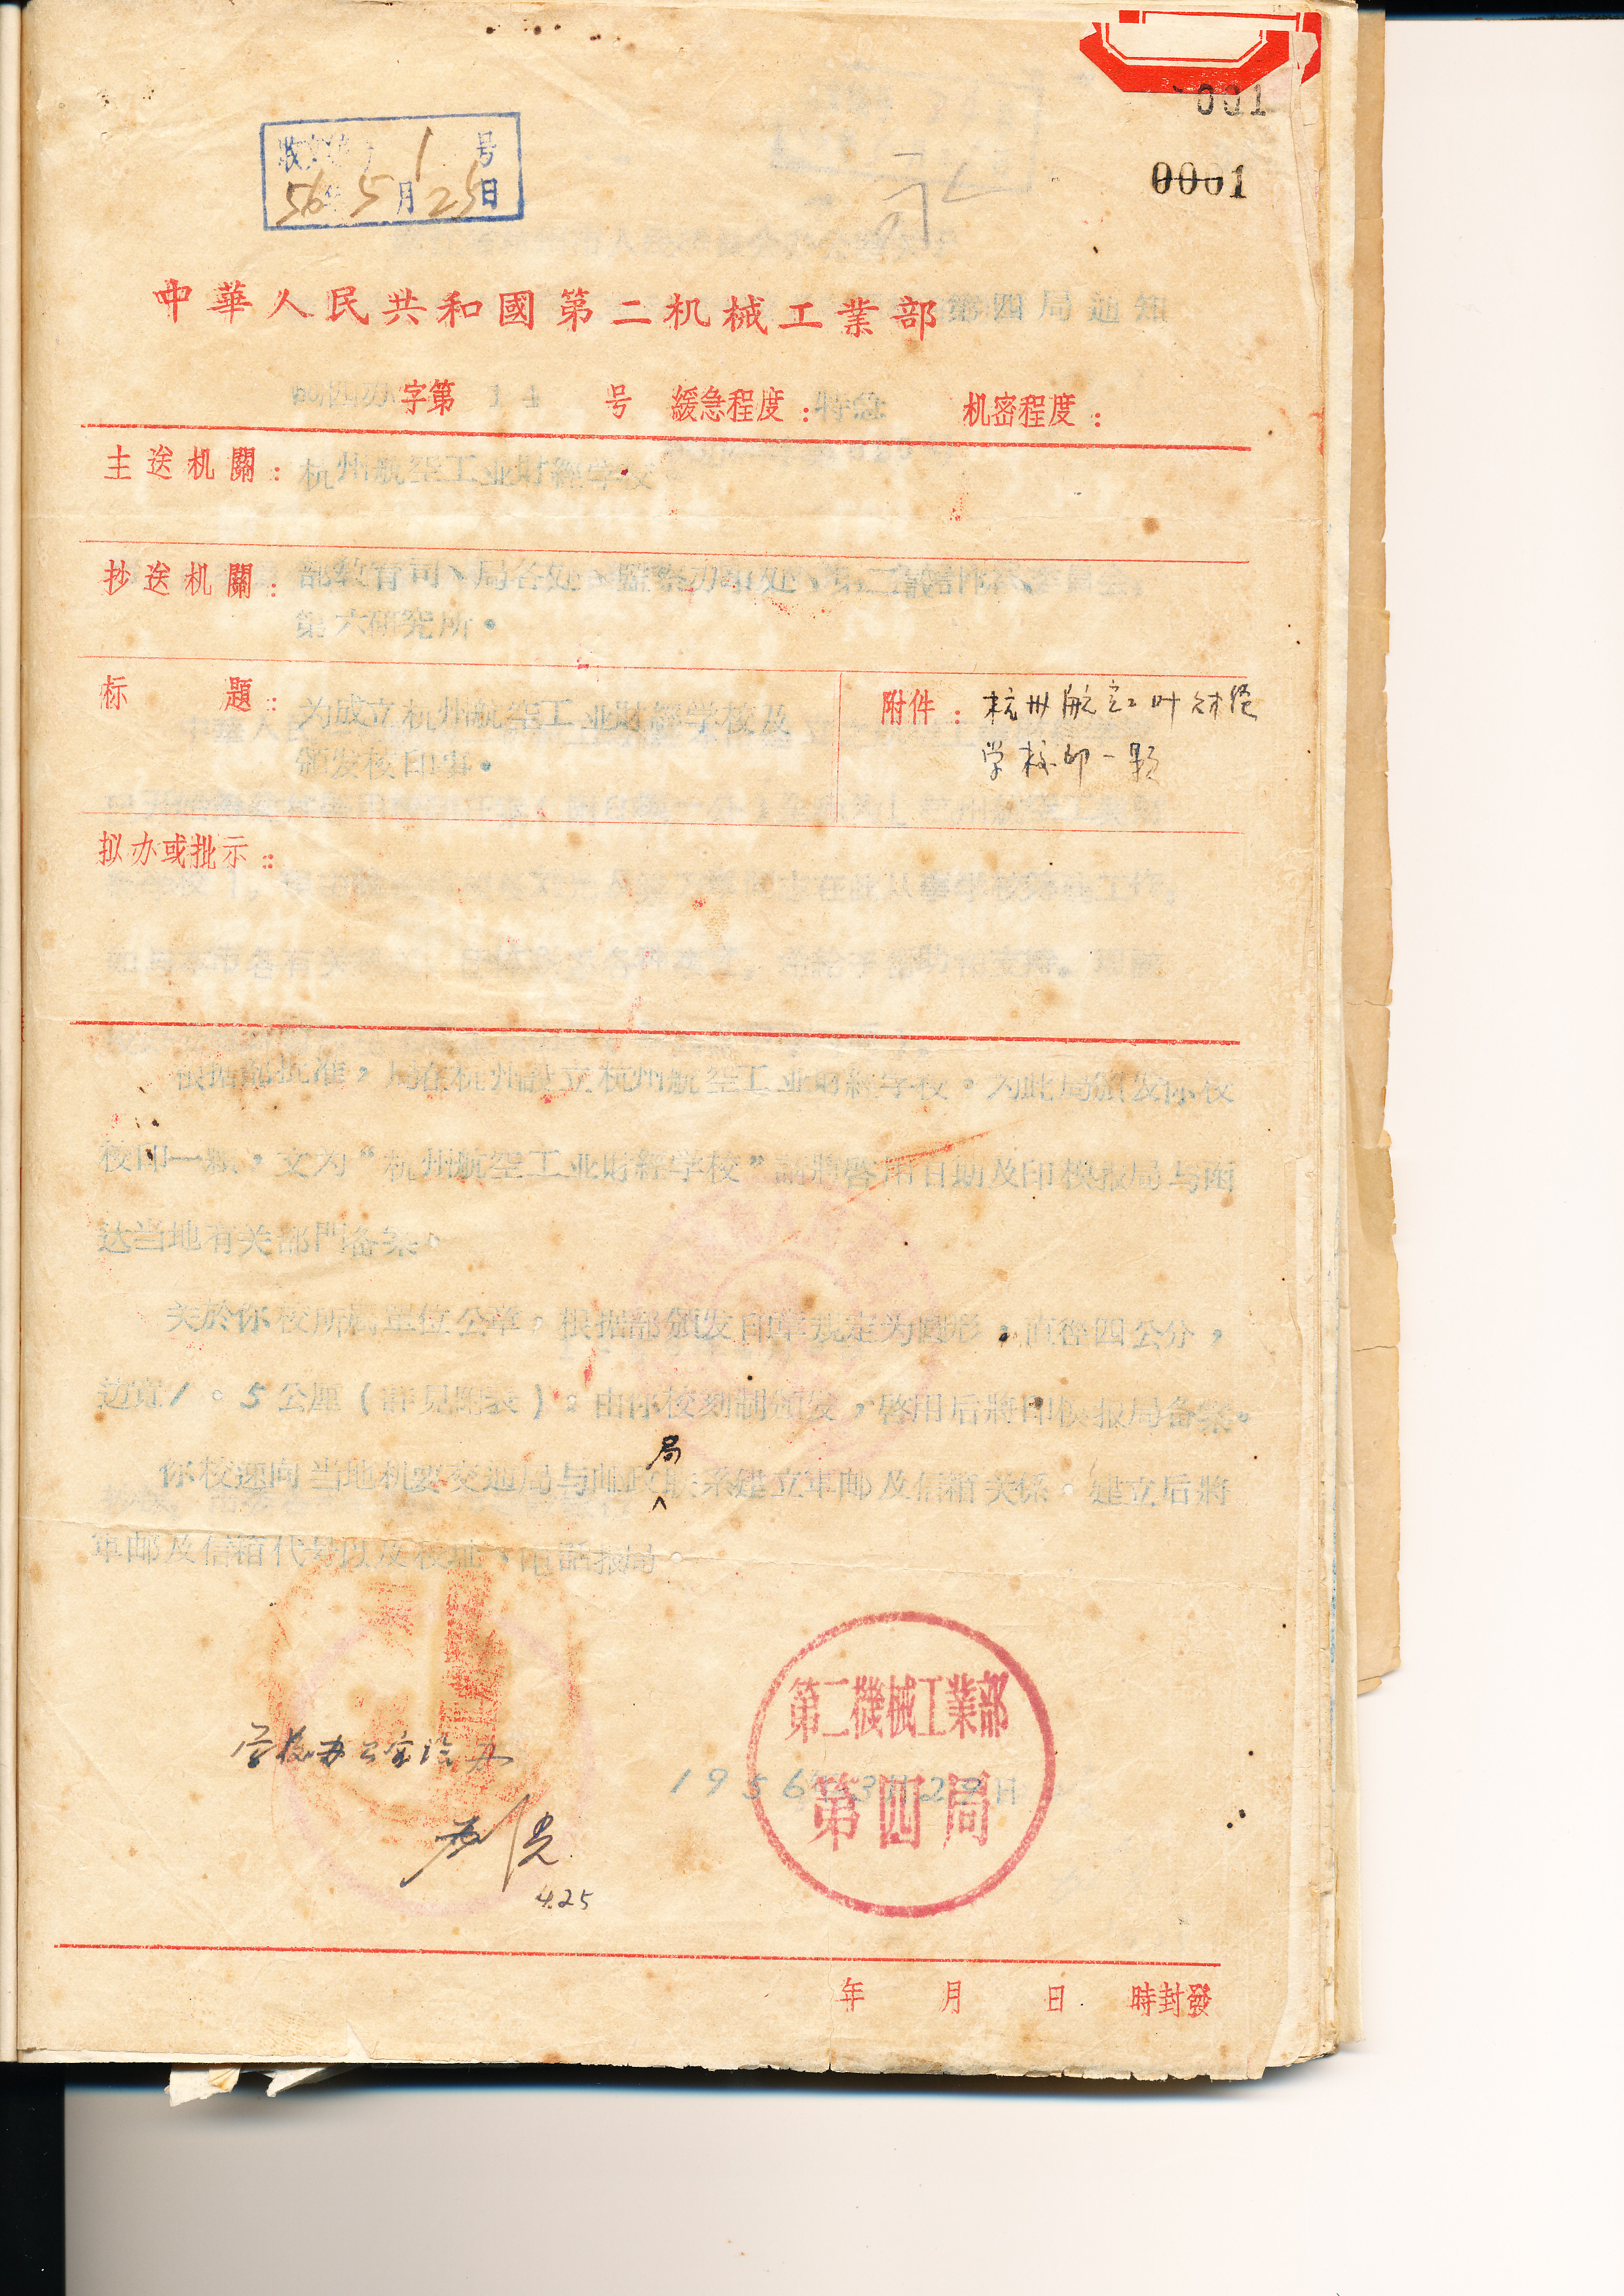 001
0001
收文 1 号
56年5月25日
中華人民共和國第二机械工業部第四局通知
四办字第 14 号 緩急程度：特急 机密程度：
主送机關：杭州航空工业財經学校
抄送机關：部教育司、局各处、監察办事处、第二設計
第六研究所。
标 題：为成立杭州航空工业財經学校及
頒发校印事。
附件：杭州航空工业财经
学校印一颗
拟办或批示：
根据部批准，局在杭州設立杭州航空工业財經学校。为此局頒发你校
校印一顆，文为“杭州航空工业財經学校”請將啓用日期及印模报局与函
达当地有关部門备案。
关於你校所屬單位公章，根据部頒发印章規定为圓形，直徑四公分，
边寬1。5公厘（詳見附表）。由你校刻制頒发，啓用后將印模报局备案。
你校速向当地机要交通局与邮政局联系建立軍邮及信箱关係。建立后將
軍邮及信箱代号以及校址、电話报局。
第二機械工業部
第四局
1956年3月29日
学校办公室洽办
4.25
年 月 日 時封發